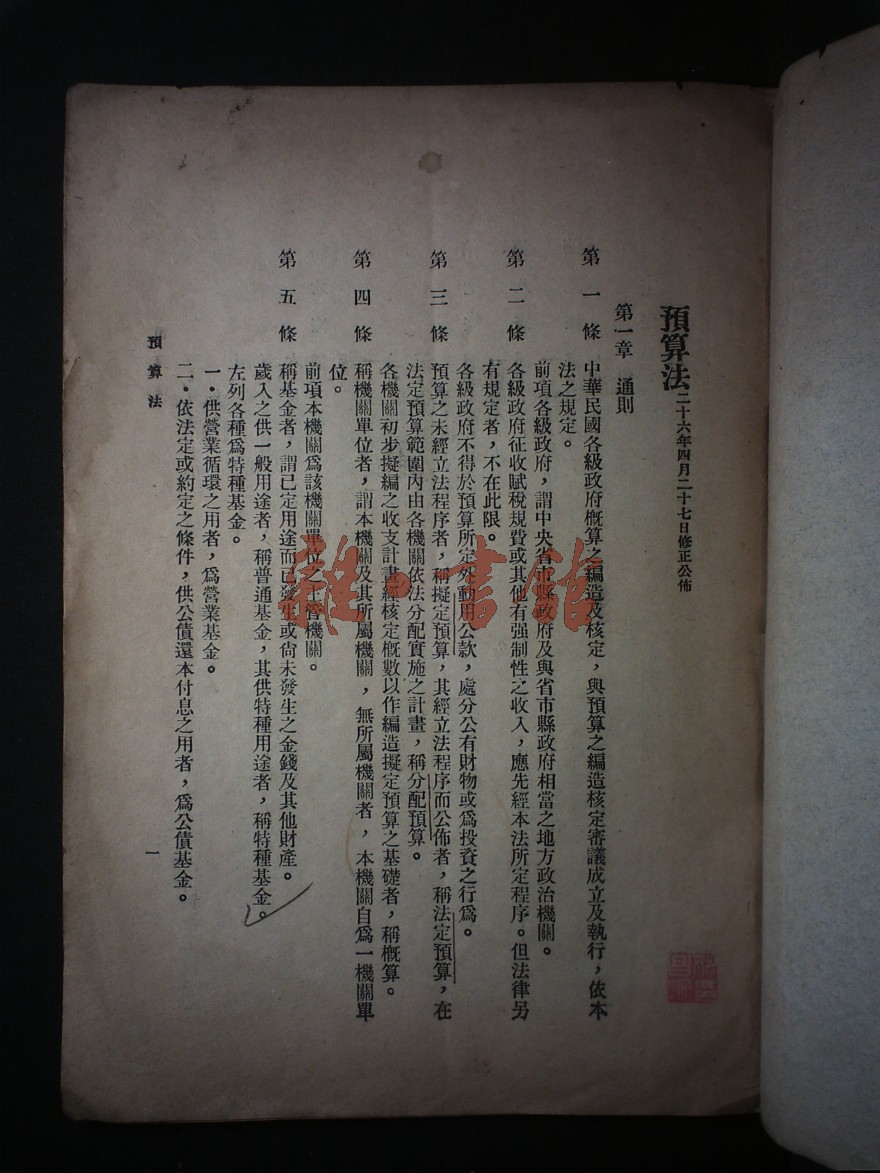 預算法 二十六年四月二十七日修正公佈
第一章 通則
第一條 中華民國各級政府概算之編造及核定，與預算之編造核定審議成立及執行，依本
法之規定。
前項各級政府，謂中央省市縣政府及與省市縣政府相當之地方政治機關。
第二條 各級政府征收賦稅規費或其他有强制性之收入，應先經本法所定程序。但法律另
有規定者，不在此限。
各級政府不得於預算所定外動用公款，處分公有財物或爲投資之行爲。
第三條 預算之未經立法程序者，稱擬定預算，其經立法程序而公佈者，稱法定預算，在
法定預算範圍內由各機關依法分配實施之計畫，稱分配預算。
各機關初步擬編之收支計畫經核定概數以作編造擬定預算之基礎者，稱概算。
第四條 稱機關單位者，謂本機關及其所屬機關，無所屬機關者，本機關自爲一機關單
位。
前項本機關爲該機關單位之主管機關。
第五條 稱基金者，謂已定用途而已發生或尙未發生之金錢及其他財產。
歲入之供一般用途者，稱普通基金，其供特種用途者，稱特種基金。
左列各種爲特種基金。
一．供營業循環之用者，爲營業基金。
二．依法定或約定之條件，供公債還本付息之用者，爲公債基金。
預算法 一
雜·書館